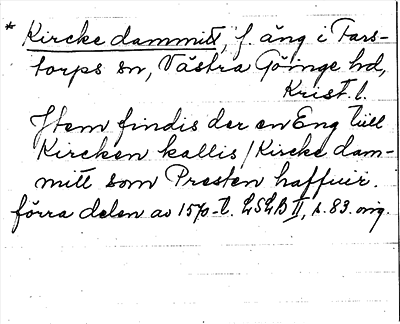 * Kircke dammitt, f. äng i Fars-
torps sn, Västra Göinge hd,
Krist. l.
Item findis der en Eng till
Kircken kallis / Kircke dam-
mitt som Presten haffuir.
förra delen av 1570-t. LSLB II, s. 83. orig.